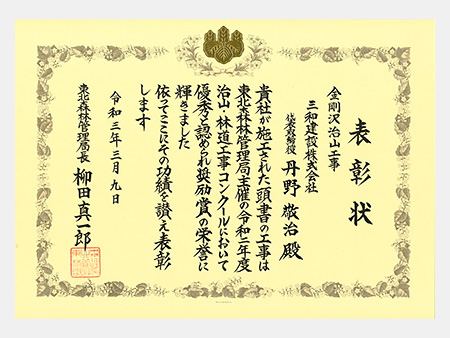 表彰状
金剛沢治山工事
三和建設株式会社
代表取締役 丹野敬治殿
貴社が施工された頭書の工事は
東北森林管理局主催の令和二年度
治山・林道工事コンクールにおいて
優秀と認められ奨励賞の栄誉に
輝きました
依ってここにその功績を讃え表彰
します
令和三年三月九日
東北森林管理局長 柳田真一郎